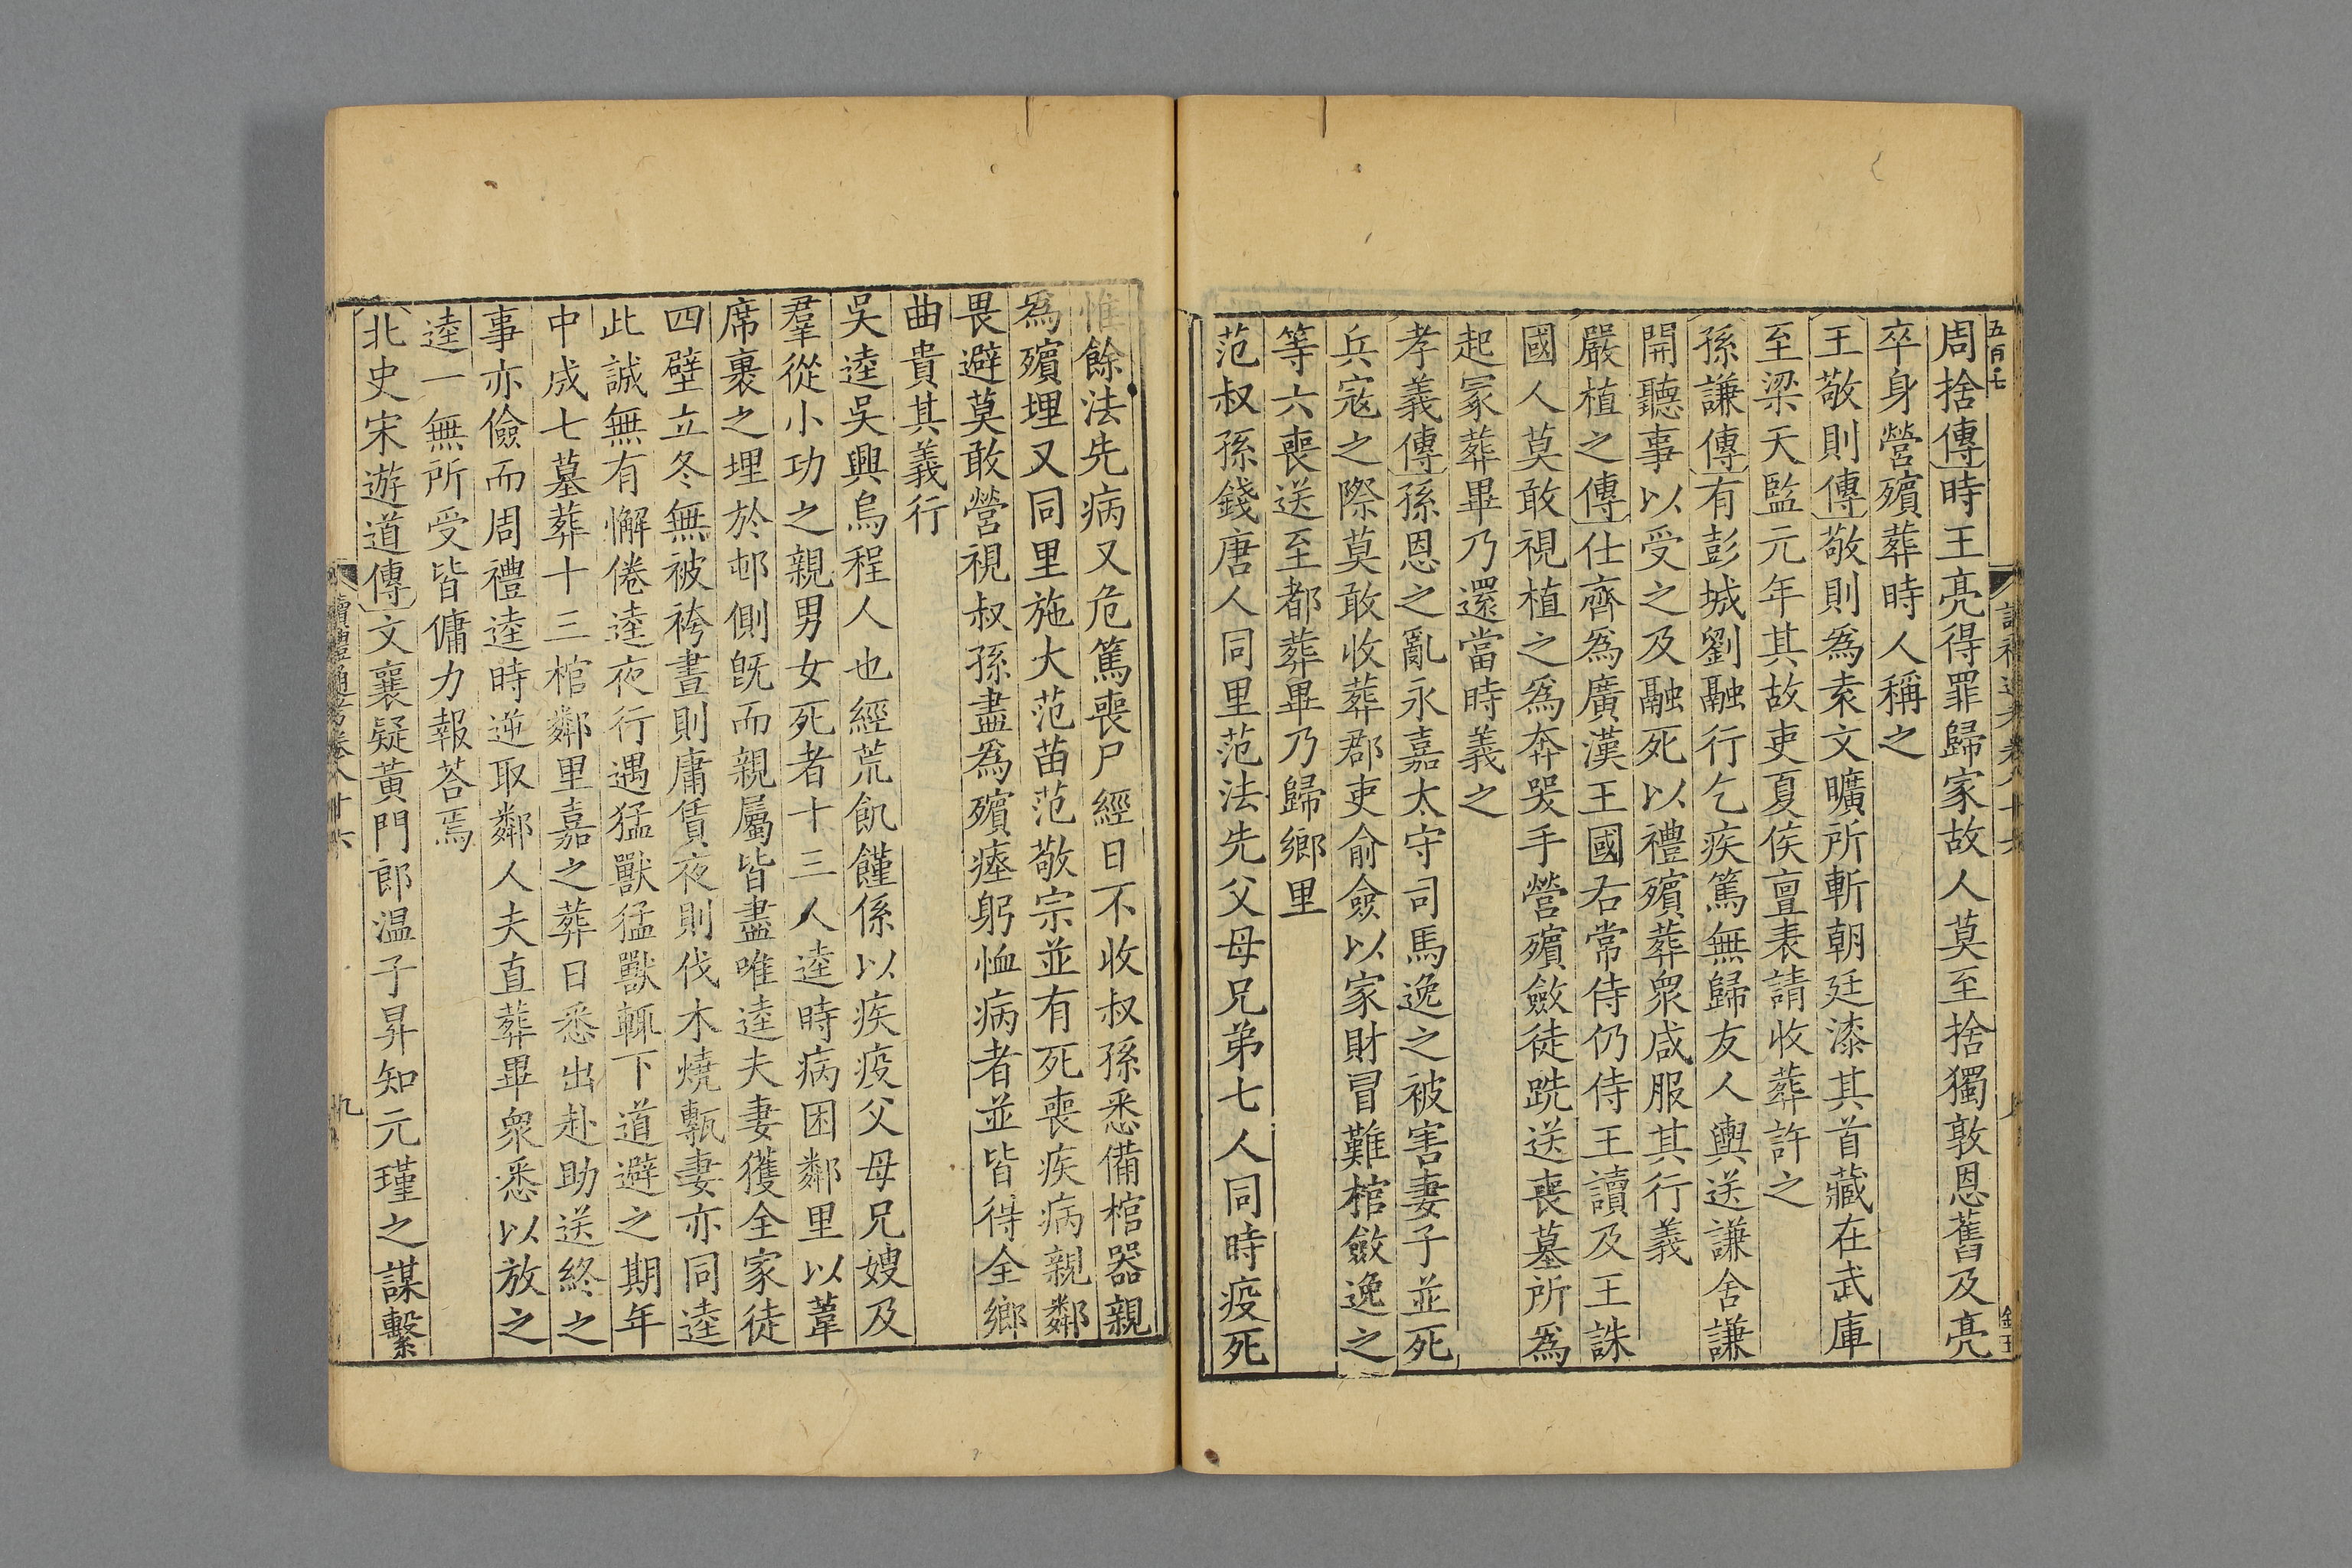 五百七
周捨傳時王亮得罪歸家故人莫至捨獨敦恩舊及亮
卒身營殯葬時人稱之
王敬則傳敬則為袁文曠所斬朝廷漆其首藏在武庫
至梁天監元年其故吏夏侯亶表請收葬許之
孫謙傳有彭城劉融行乞疾篤無歸友人輿送謙舍謙
開聽事以受之及融死以禮殯葬衆咸服其行義
嚴植之傳仕齊為廣漢王國右常侍仍侍王讀及王誅
國人莫敢視植之為奔哭手營殯斂徒跣送喪墓所為
起冢葬畢乃還當時義之
孝義傳孫恩之亂永嘉太守司馬逸之被害妻子並死
兵寇之際莫敢收葬郡吏俞僉以家財冒難棺斂逸之
等六喪送至都葬畢乃歸鄉里
范叔孫錢唐人同里范法先父母兄弟七人同時疫死
惟餘法先病又危篤喪尸經日不收叔孫悉備棺器親
為殯埋又同里施大范苗范敬宗並有死喪疾病親鄰
畏避莫敢營視叔孫盡為殯瘞躬恤病者並皆得全鄉
曲貴其義行
吳逵吳興烏程人也經荒飢饉係以疾疫父母兄嫂及
羣從小功之親男女死者十三人逵時病困鄰里以葦
席裹之埋於邨側旣而親屬皆盡唯逵夫妻獲全家徒
四壁立冬無被袴晝則庸賃夜則伐木燒甎妻亦同逵
此誠無有懈倦逵夜行遇猛獸猛獸輒下道避之期年
中成七墓葬十三棺鄰里嘉之葬日悉出赴助送終之
事亦儉而周禮逵時逆取鄰人夫直葬畢衆悉以放之
逵一無所受皆傭力報荅焉
北史宋遊道傳文襄疑黃門郎温子昇知元瑾之謀繫
讀禮通考卷八十六
九